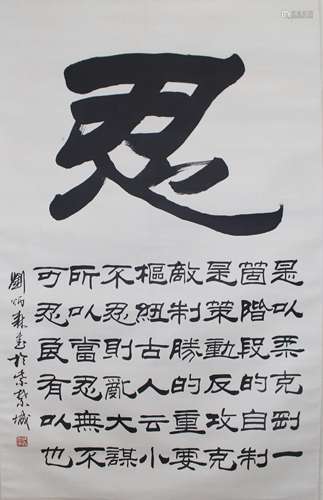 忍
是以柔克剛一
箇階段的自制
是策動反攻克
敵制勝的重要
樞紐古人云小
不忍則亂大謀
所以富忍無不
可忍良有以也
劉炳森書於紫禁城